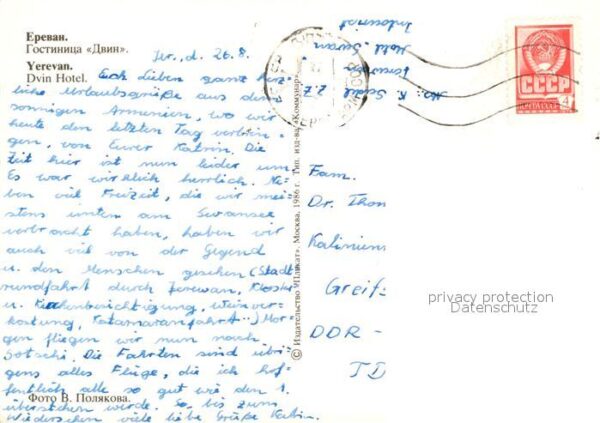 Ереван.
Гостиница «Двин».
Yerevan.
Dvin Hotel.
Jer., d. 26.8.
Euch lieben ganz herz-
liche Urlaubsgrüße aus dem
sonnigen Armenien, wo wir
heute den letzten Tag verbrin-
gen, von Eurer Katrin. Die
Zeit hier ist nun leider um.
Es war wirklich herrlich. Ne-
ben viel Freizeit, die wir mei-
stens unten am Sewansee
verbracht haben, haben wir
auch viel von der Gegend
u. den Menschen gesehen (Stadt-
rundfahrt durch Jerewan, Kloster
u. Kirchenbesichtigung, Weinver-
kostung, Katamaranfahrt..) Mor-
gen fliegen wir nun nach
Sotschi. Die Fahrten sind übri-
gens alles Flüge, die ich hof-
fentlich alle so gut wie den 1.
überstehen werde. So, bis zum
Wiedersehen viele liebe Grüße Katrin.
Фото В. Полякова.
© Издательство «Плакат». Москва. 1986 г. Тип. изд-ва «Коммунар».
K. Seidel z.Z.
Hotel Sewan
Intourist
СССР
ПОЧТА СССР
4
Fam.
Dr. Thom
Kalinien
Greifs
DDR -
privacy protection
Datenschutz